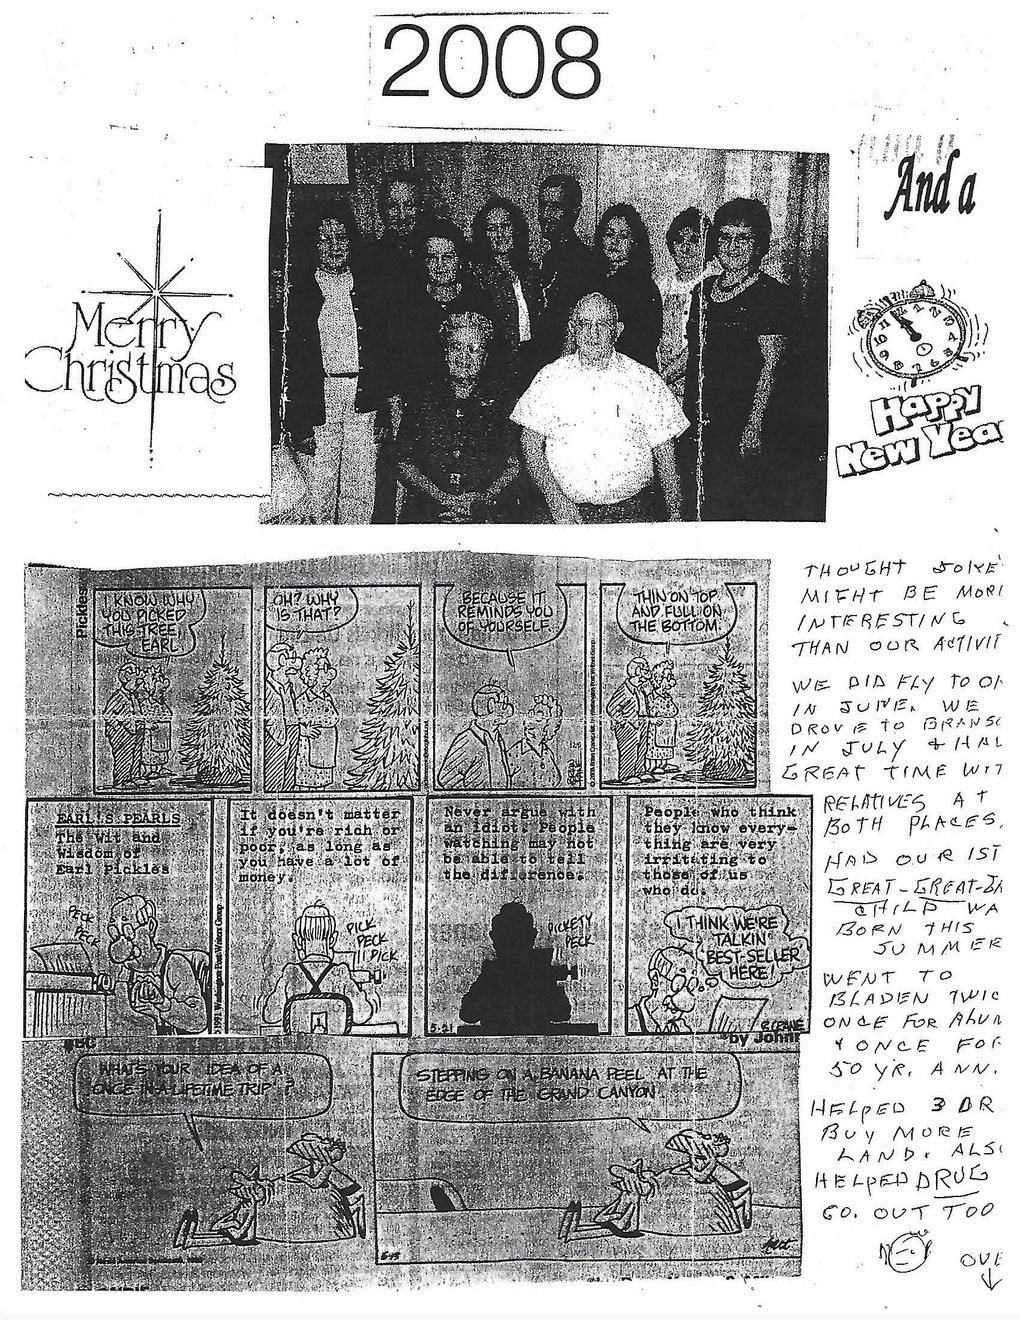 2008
And a
Merry
Christmas
Happy
New Yea
Pickles
I KNOW WHY
YOU PICKED
THIS TREE,
EARL.
OH? WHY
IS THAT?
BECAUSE IT
REMINDS YOU
OF YOURSELF.
THIN ON TOP
AND FULL ON
THE BOTTOM.
EARL'S PEARLS
The Wit and
Wisdom of
Earl Pickles
PECK
PECK
It doesn't matter
if you're rich or
poor, as long as
you have a lot of
money.
PICK
PECK
PICK
Never argue with
an idiot. People
watching may not
be able to tell
the difference.
PICKETY
PECK
5-21
People who think
they know every-
thing are very
irritating to
those of us
who do.
I THINK WE'RE
TALKIN'
BEST-SELLER
HERE!
by John
WHAT'S YOUR IDEA OF A
"ONCE-IN-A-LIFETIME TRIP"?
STEPPING ON A BANANA PEEL AT THE
EDGE OF THE GRAND CANYON.
THOUGHT SOME
MIGHT BE MOR
INTERESTING
THAN OUR ACTIVIT
WE DID FLY TO
IN JUNE. WE
DROVE TO BRANS
IN JULY + HA
GREAT TIME WIT
RELATIVES AT
BOTH PLACES.
HAD OUR 1ST
GREAT-GREAT-
CHILD WA
BORN THIS
SUMMER
WENT TO
BLADEN TWIC
ONCE FOR ALUM
Y ONCE FOR
50 YR. ANN.
HELPED 3 DR
BUY MORE
LAND. ALS
HELPED DRUG
CO. OUT TOO
OVE